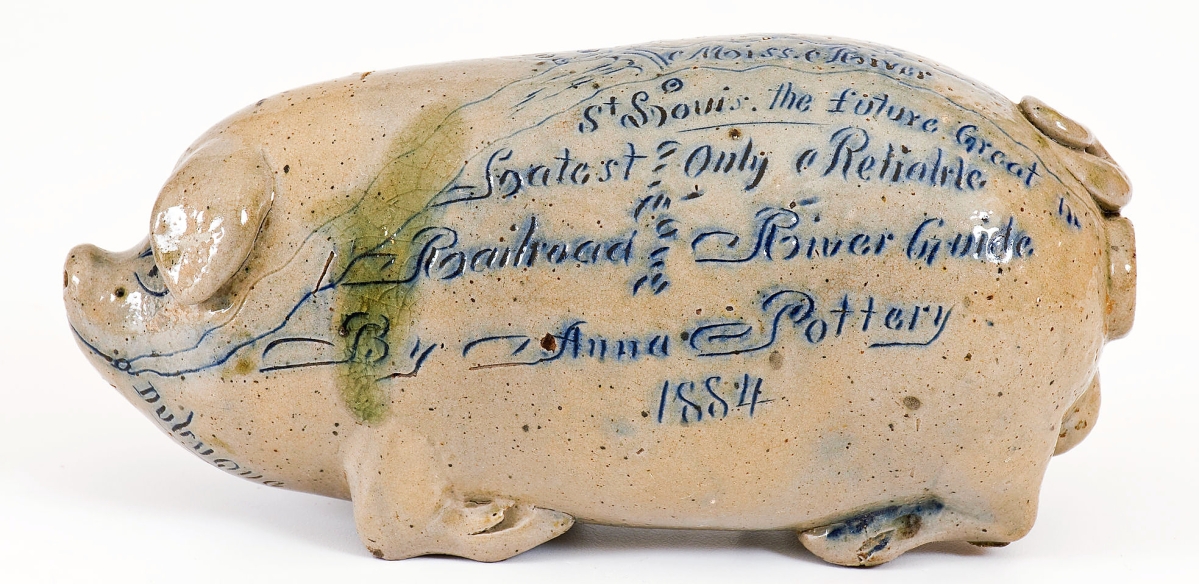 Miss. River
St Louis. the future Great
Latest Only & Reliable
Railroad River Guide
By Anna Pottery
1884